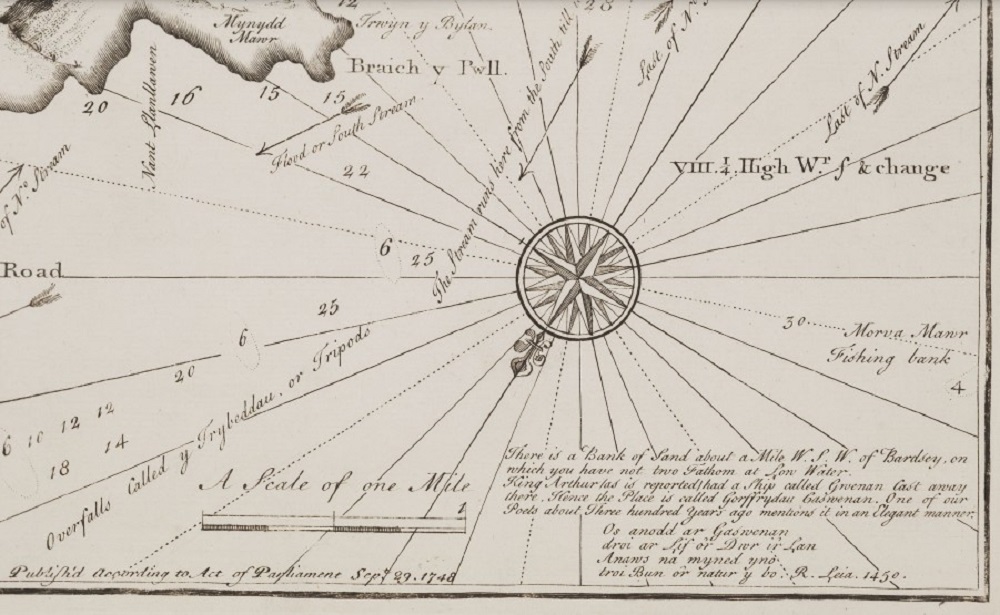 12
28
Mynydd
Mawr
Trwyn y Bylan.
Braich y Pwll.
20
16
15
15
Nant Llanllawen
Flood or South Stream.
22
The Stream runs here from the South till
Last of N.
Last of N. Stream
VIII.¼. High Wr. f & change
of No. Stream
6
25
Road
25
6
20
30
Morva Mawr
Fishing bank
4
6 10 12 12
14
18
Overfalls called y Trybeddau, or Tripods
A Scale of one Mile
1
There is a Bank of Sand about a Mile W. S. W. of Bardsey, on
which you have not two Fathom at Low Water.
King Arthur as is reported had a Ship called Gwenan Cast away
there. Hence the Place is called Gorffrydau Caswenan. One of our
Poets about Three hundred Years ago mentions it in an Elegant manner.
Os anodd ar Gaswenan
droi ar Lif o'r Dwr i'r Lan
Anaws na myned yno
troi Bun o'r natur y bo: R. Leia. 1450.
Publish'd According to Act of Parliament Sept. 29. 1748